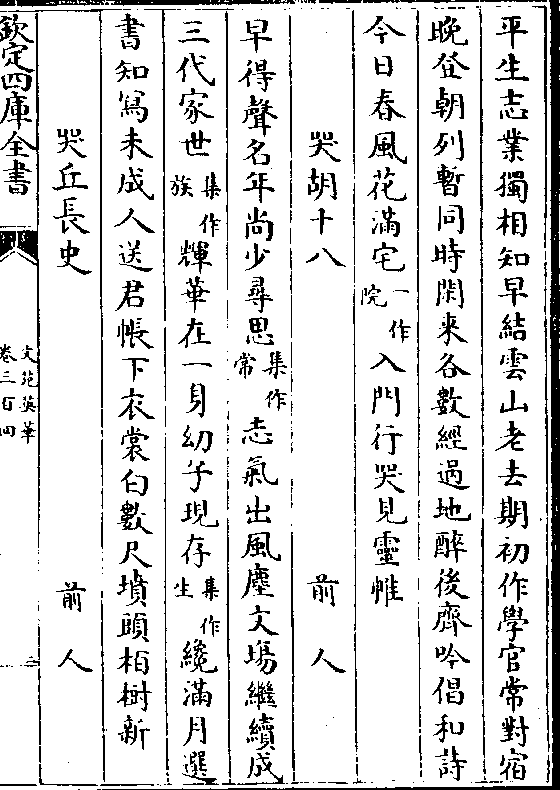 平生志業獨相知早結雲山老去期初作學官常對宿
晚登朝列暫同時閑来各數經過地醉後齊吟倡和詩
今日春風花滿宅一作院入門行哭見靈帷
哭胡十八 前人
早得聲名年尚少尋思集作常志氣出風塵文場繼續成
三代家世集作族輝華在一身幼子現存集作生纔滿月選
書知寫未成人送君帳下衣裳白數尺墳頭柏樹新
哭丘長史 前人
欽定四庫全書
文苑英華
卷三百四
二